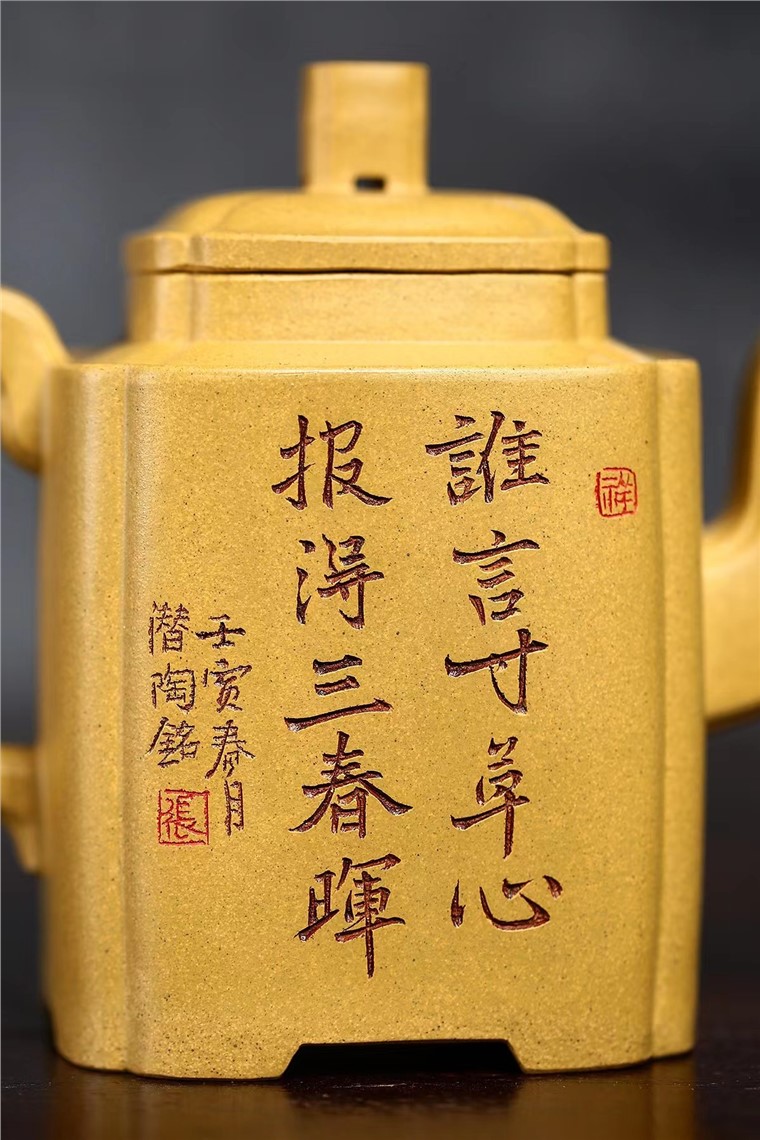 祥
誰言寸草心
报得三春暉
壬寅春月
潛陶銘
張